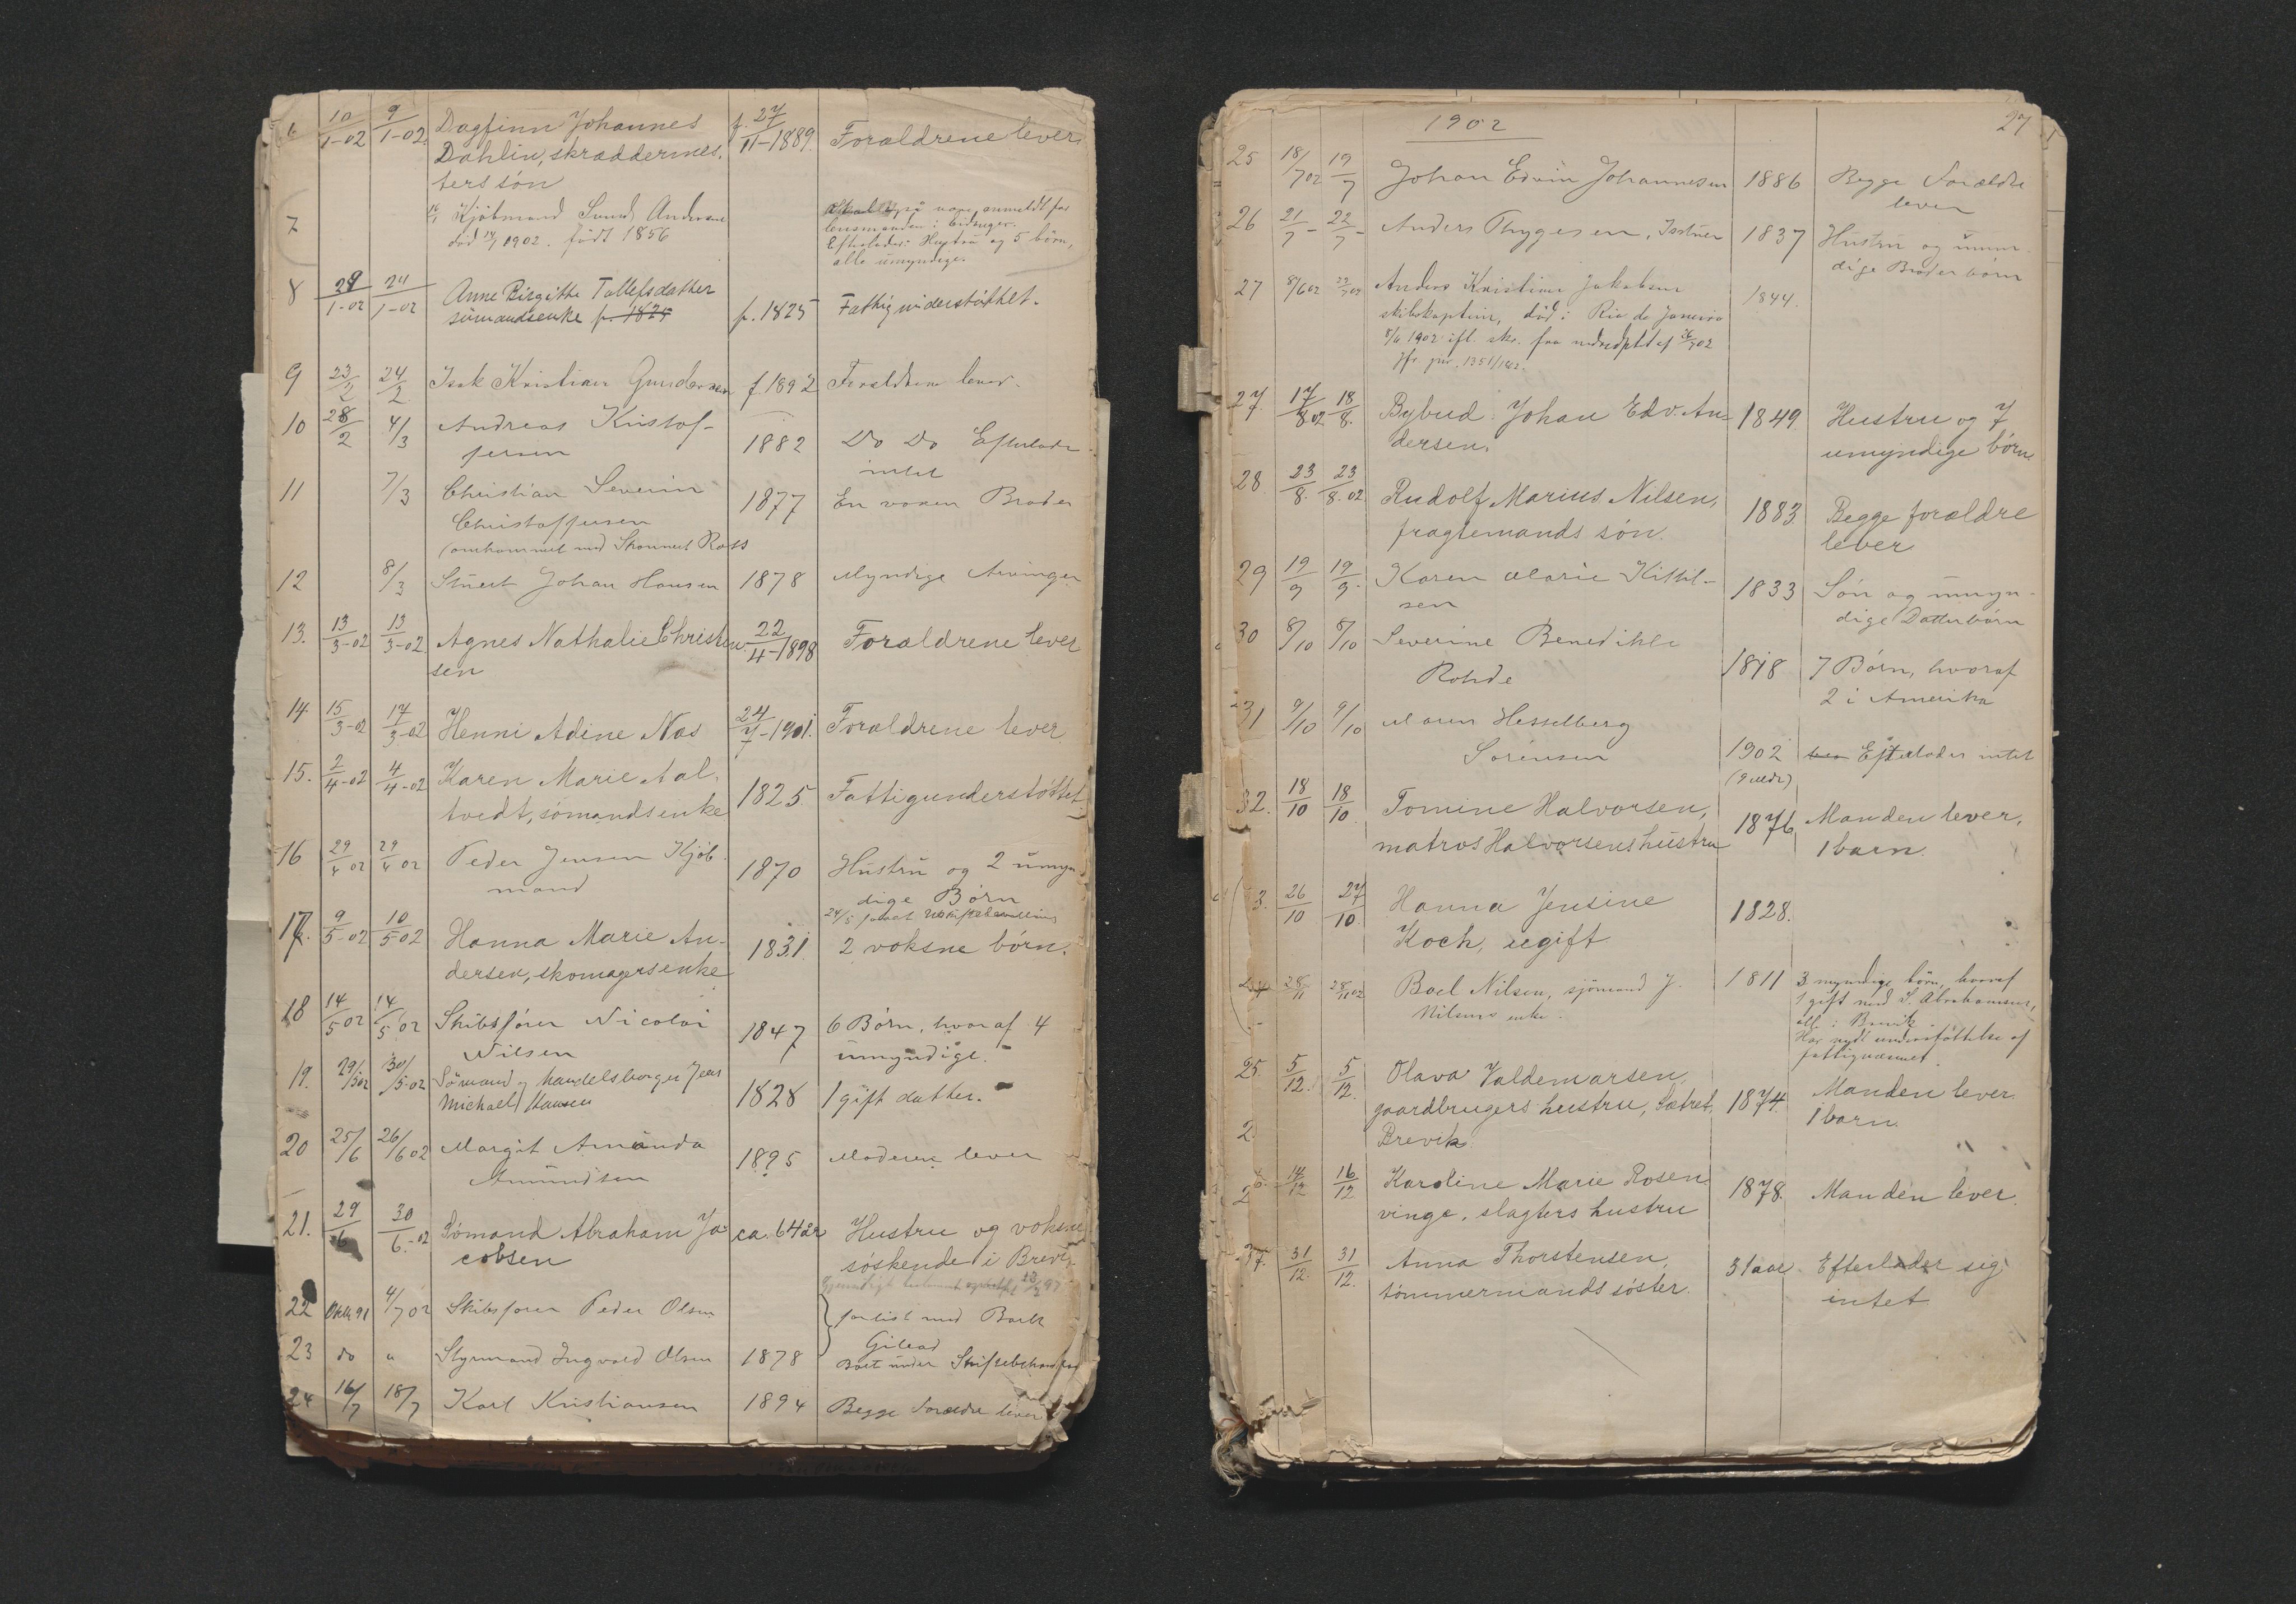 6 10/1-02 9/1-02. Dagfinn Johannes f. 27/11-1889. Forældrene lever
Dahlin, skræddermes.
ters søn
7 Kjøbmand Lund Andersen
død 14/1 1902. født 1856
også være anmeldt for
lensmanden i Eidanger.
Efterlader: Hustru og 5 børn,
alle umyndige.
8 1-02 24/1-02 Anne Birgitte Tollefsdatter
sømandsenke f. 1825 f. 1825 Fattigunderstøttet.
9 23/2 24/2 Isak Kristian Gundersen f. 1892 Forældrene lever.
10 28/2 4/3 Andreas Kristof-
fersen 1882 Do Do Efterlader
intet
11 7/3 Christian Severin
Christoffersen 1877 En voxen Broder
(omkommet med Skonnert Ross
12 8/3 Stuert Johan Hansen 1878 Myndige Arvinger
13. 13/3-02 13/3-02. Agnes Nathalie Christen 22/4-1898 Forældrene lever
sen
14. 15/3-02 17/3-02 Henni Adine Næs 24/7-1901. Forældrene lever
15. 2/4-02 4/4-02 Karen Marie Aal-
tvedt, sømandsenke 1825. Fattigunderstøttet.
16 29/4 02 29/4 02 Peder Jensen Kjøb-
mand 1870 Hustru og 2 umyn
dige Børn
24/5
17. 9/5-02 10/5 02 Hanna Marie An-
dersen, skomagersenke 1831. 2 voksne børn.
18 14/5 02 14/5 02 Skibsfører Nicolai
Nilsen 1847 6 Børn, hvoraf 4
umyndige.
19. 29/5 02 30/5-02 Sømand og handelsborger Jens
Michael Hansen 1828 1 gift datter.
20 25/6 26/6 02 Margit Amanda
Amundsen 1895 Moderen lever
21. 29/6 30/6-02 Sømand Abraham Ja- ca. 64 år Hustru og voksne
cobsen søskende i Brevik
22 Oktb. 91 4/7 02 Skibsfører Peder Olsen
forlist med Bark
Gilead
23 do " Styrmand Ingvald Olsen 1878 Boet under Skiftebehandling
24 16/7 18/7 Karl Kristiansen 1894 Begge Forældre lever
1902 27
25 18/7 02 19/7 Johan Edvin Johannesen 1886 Begge Forældre
lever
26 21/7 - 22/7 - Anders Thygesen, 1837 Hustru og umyn-
dige Broderbørn
27 8/6 02 Anders Kristian Jakobsen 1844.
skibskaptein, død i Rio de Janeiro
8/6 1902 ifl. skr. fra
Jfr. jnr. 1351/1902.
27. 17/8 02 18/8. Bybud Johan Edv. An- 1849 Hustru og 7
dersen. umyndige børn.
28. 23/8. 23/8. 02 Rudolf Marius Nilsen,
fragtemands søn. 1883. Begge forældre
lever
29 19/9 19/9. Karen Marie Kittil-
sen 1833 Søn og umyn-
dige Datterbørn
30 8/10 8/10 Severine Benedikte
Rohde 1818 7 Børn, hvoraf
2 i Amerika
31 9/10 9/10 Maren Hesselberg
Sørensen 1902 Efterlader intet
32. 18/10 18/10. Tomine Halvorsen,
matros Halvorsens hustru 1876 Manden lever,
1 barn.
3. 26/10 27/10. Hanna Jensine 1828.
Koch, ugift
28/11 28/11 02 Boel Nilsen, sjømand J. 1811 3 myndige børn, hvoraf
Nilsens enke. 1 gift med S. Abrahamsen,
alle i Brevik
Har nydt understøttelse af
fattigvæsenet
25. 5/12. 5/12. Olava Valdemarsen,
gaardbrugers hustru, Sætret, 1874. Manden lever
2. Brevik. 1 barn.
2 6. 14/12 16/12 Karoline Marie Rosen- 1878. Manden lever.
vinge, slagters hustru
37. 31/12. 31/12. Anna Thorstensen, 31 aar. Efterlader sig
tømmermands søster. intet